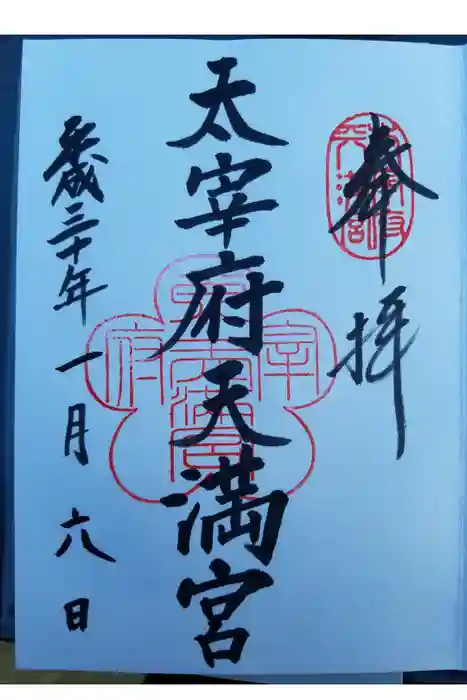 奉拝
太宰府天満宮
平成三十年一月六日